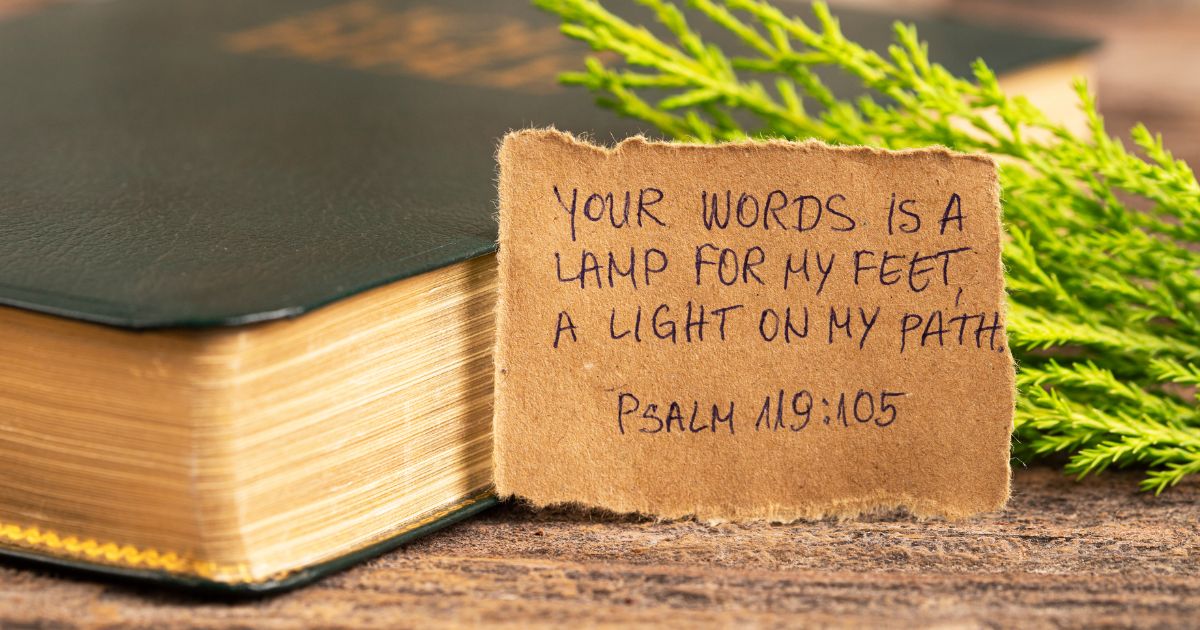 YOUR WORDS IS A
LAMP FOR MY FEET,
A LIGHT ON MY PATH.
PSALM 119:105